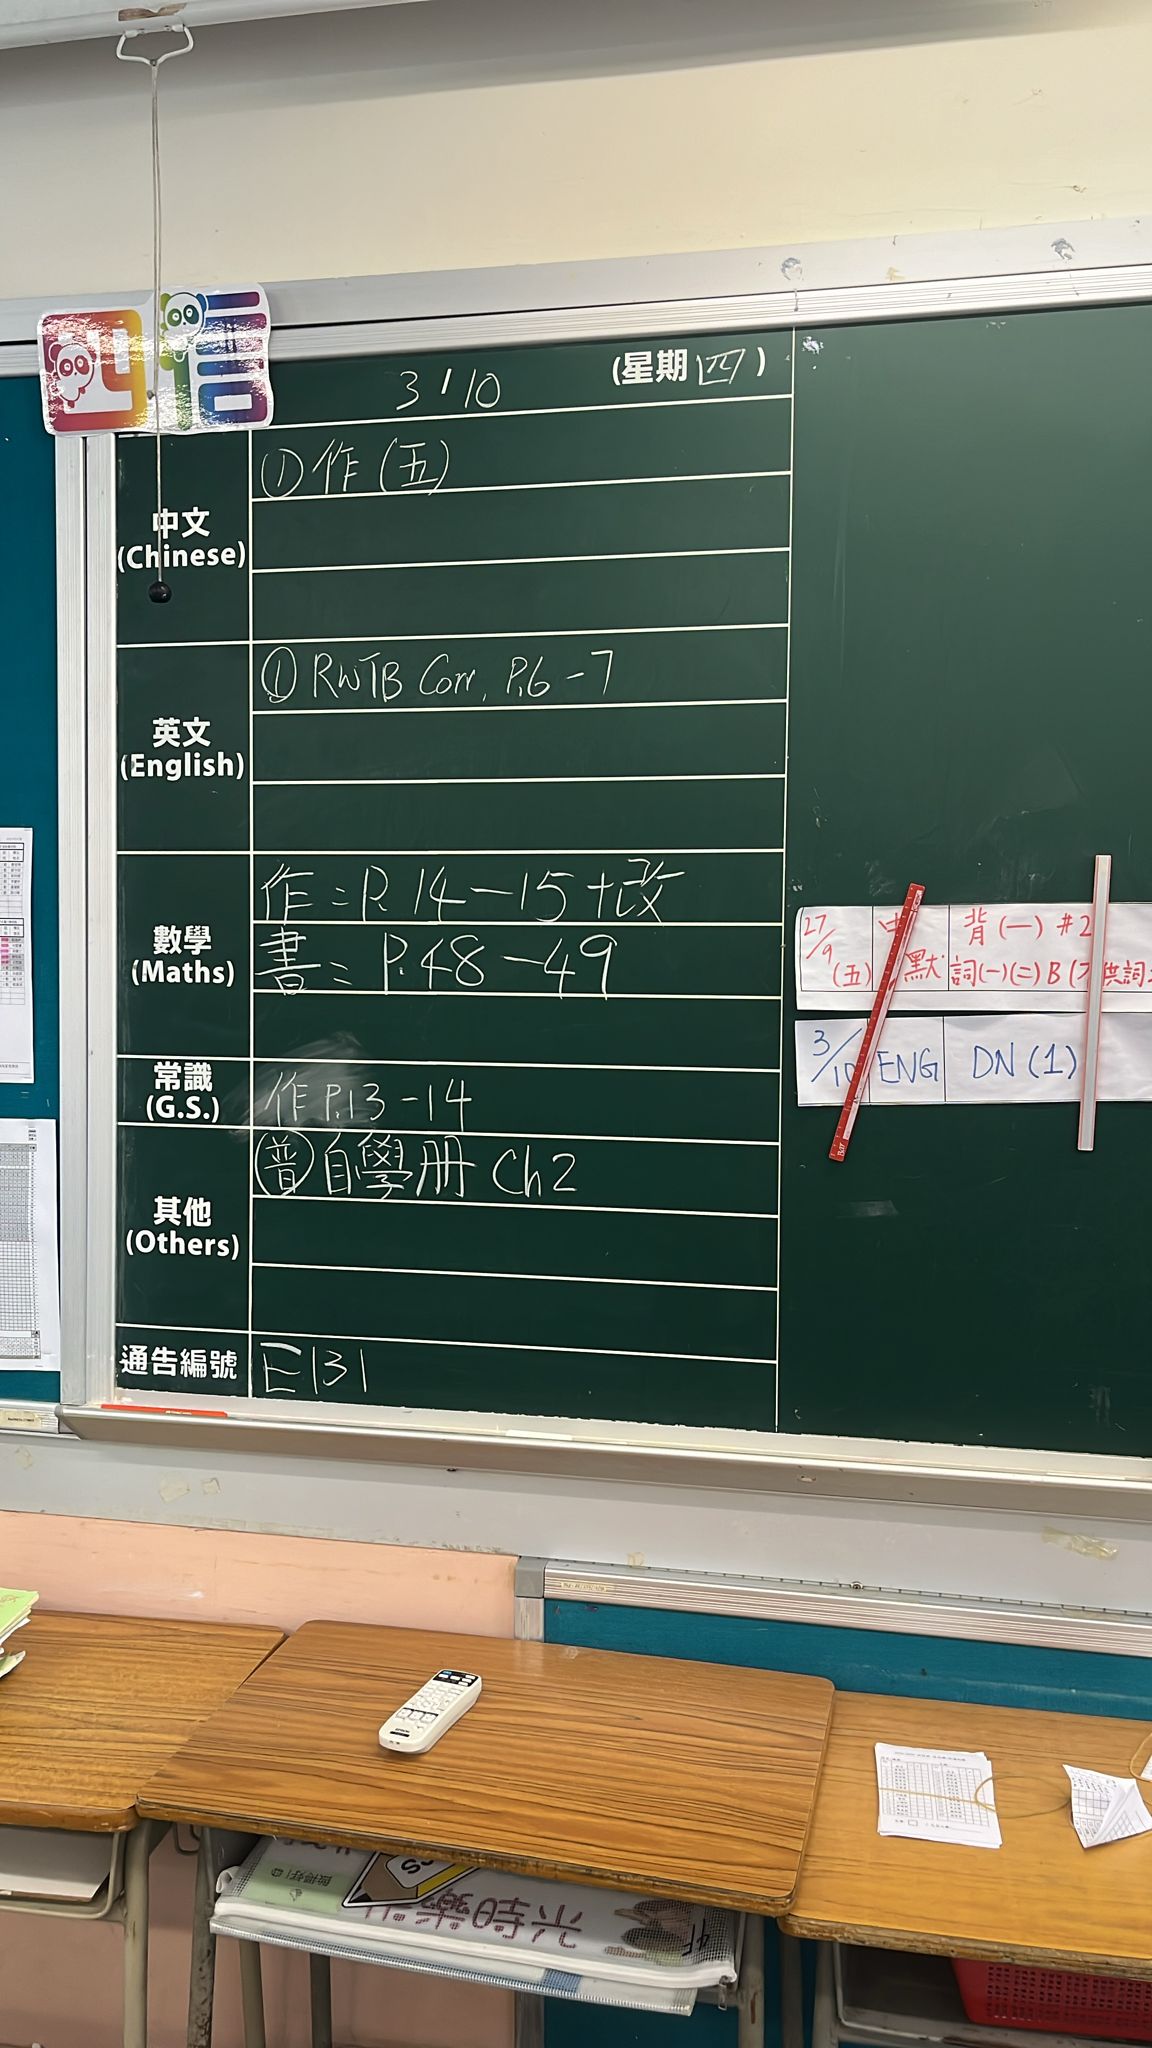 四信
3/10
(星期四)
中文
(Chinese)
①作(五)
英文
(English)
①RWTB Corr. P.6-7
數學
(Maths)
作:P.14-15+改
書:P.48-49
常識
(G.S.)
作P.13-14
其他
(Others)
㊟自學册 Ch2
通告編號
E131
27/9(五)
默
背(一) #2
詞(一)(二)B
3/10
ENG
DN(1)
EPSON